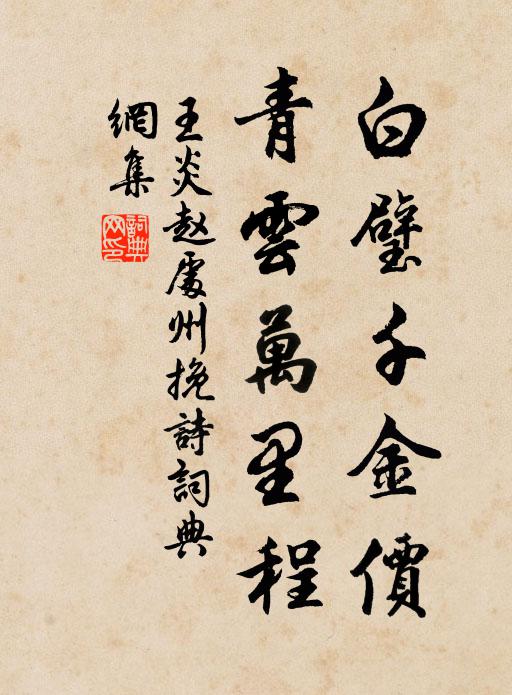 白璧千金價
青雲萬里程
王炎赵處州挽詩詞典
網集
詞典
网印